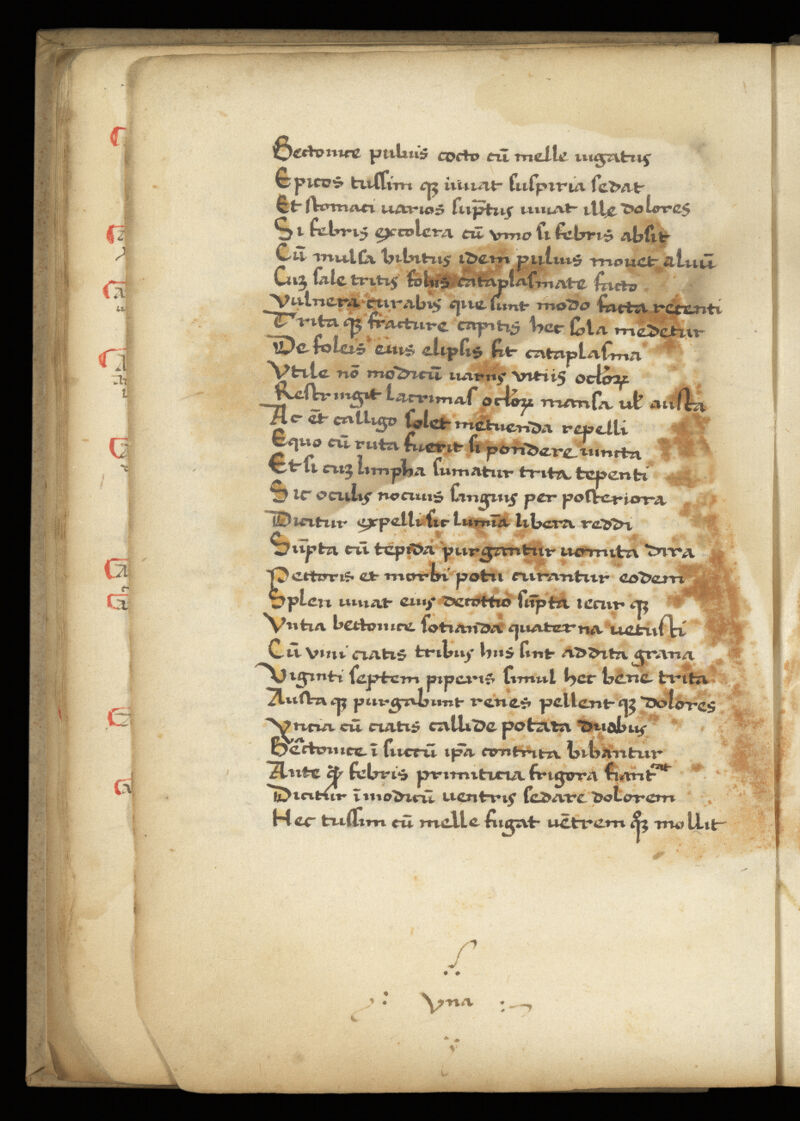 Bectonice puluis cocto cū melle iugatus
Epicos tussim qꝫ iuuat suspiria sedat
Et stomaci uarios sūptus iuuat ille dolores
Si febris excolera cū vino si febris absit
Cū mulsa bibitus idem puluis mouet aluū
Cuꝫ sale tritis foliis cataplasmate facto
Vulnera curabis que sunt modo facta recenti
Trita qꝫ fracture capitis hec sola medetur
De foleis eius elipsis fit cataplasma
Vtile nō modicū uariis vitiis ocłoꝝ
Restringit lacrimas ocłoꝝ mansa ul' austa
Ac ēt calligo solet metuenda repelli
Equo cū ruta fuerit si pondere iuncta
Et si cuꝫ limpha sumatur trita tepenti
Sic oculis nociuus sanguis per posteriora
Dicitur expelli sic lumīa libera reddi
Sūpta cū tepida purgantur uomita dira
Pectoris et morbi potu curantur eodem
Splen iuuat eius decottio sūpta iecur qꝫ
Vntia bectonice sotianda quaterna uetusti
Cū vini ciatis tribus hiis sint addita grana
Viginti septem piperis simul hec bene trita
Austa qꝫ purgabunt renes pellent qꝫ dolores
Vncia cū ciatis callide potata duabus
Bectonice ī succū ipa contrita bibantur
Ante qꝫ febris primiticia frigora fiant
Dicitur īmodicū uentris sedare dolorem
Hec tussim cū melle fugat uētrem qꝫ mollit
Vna